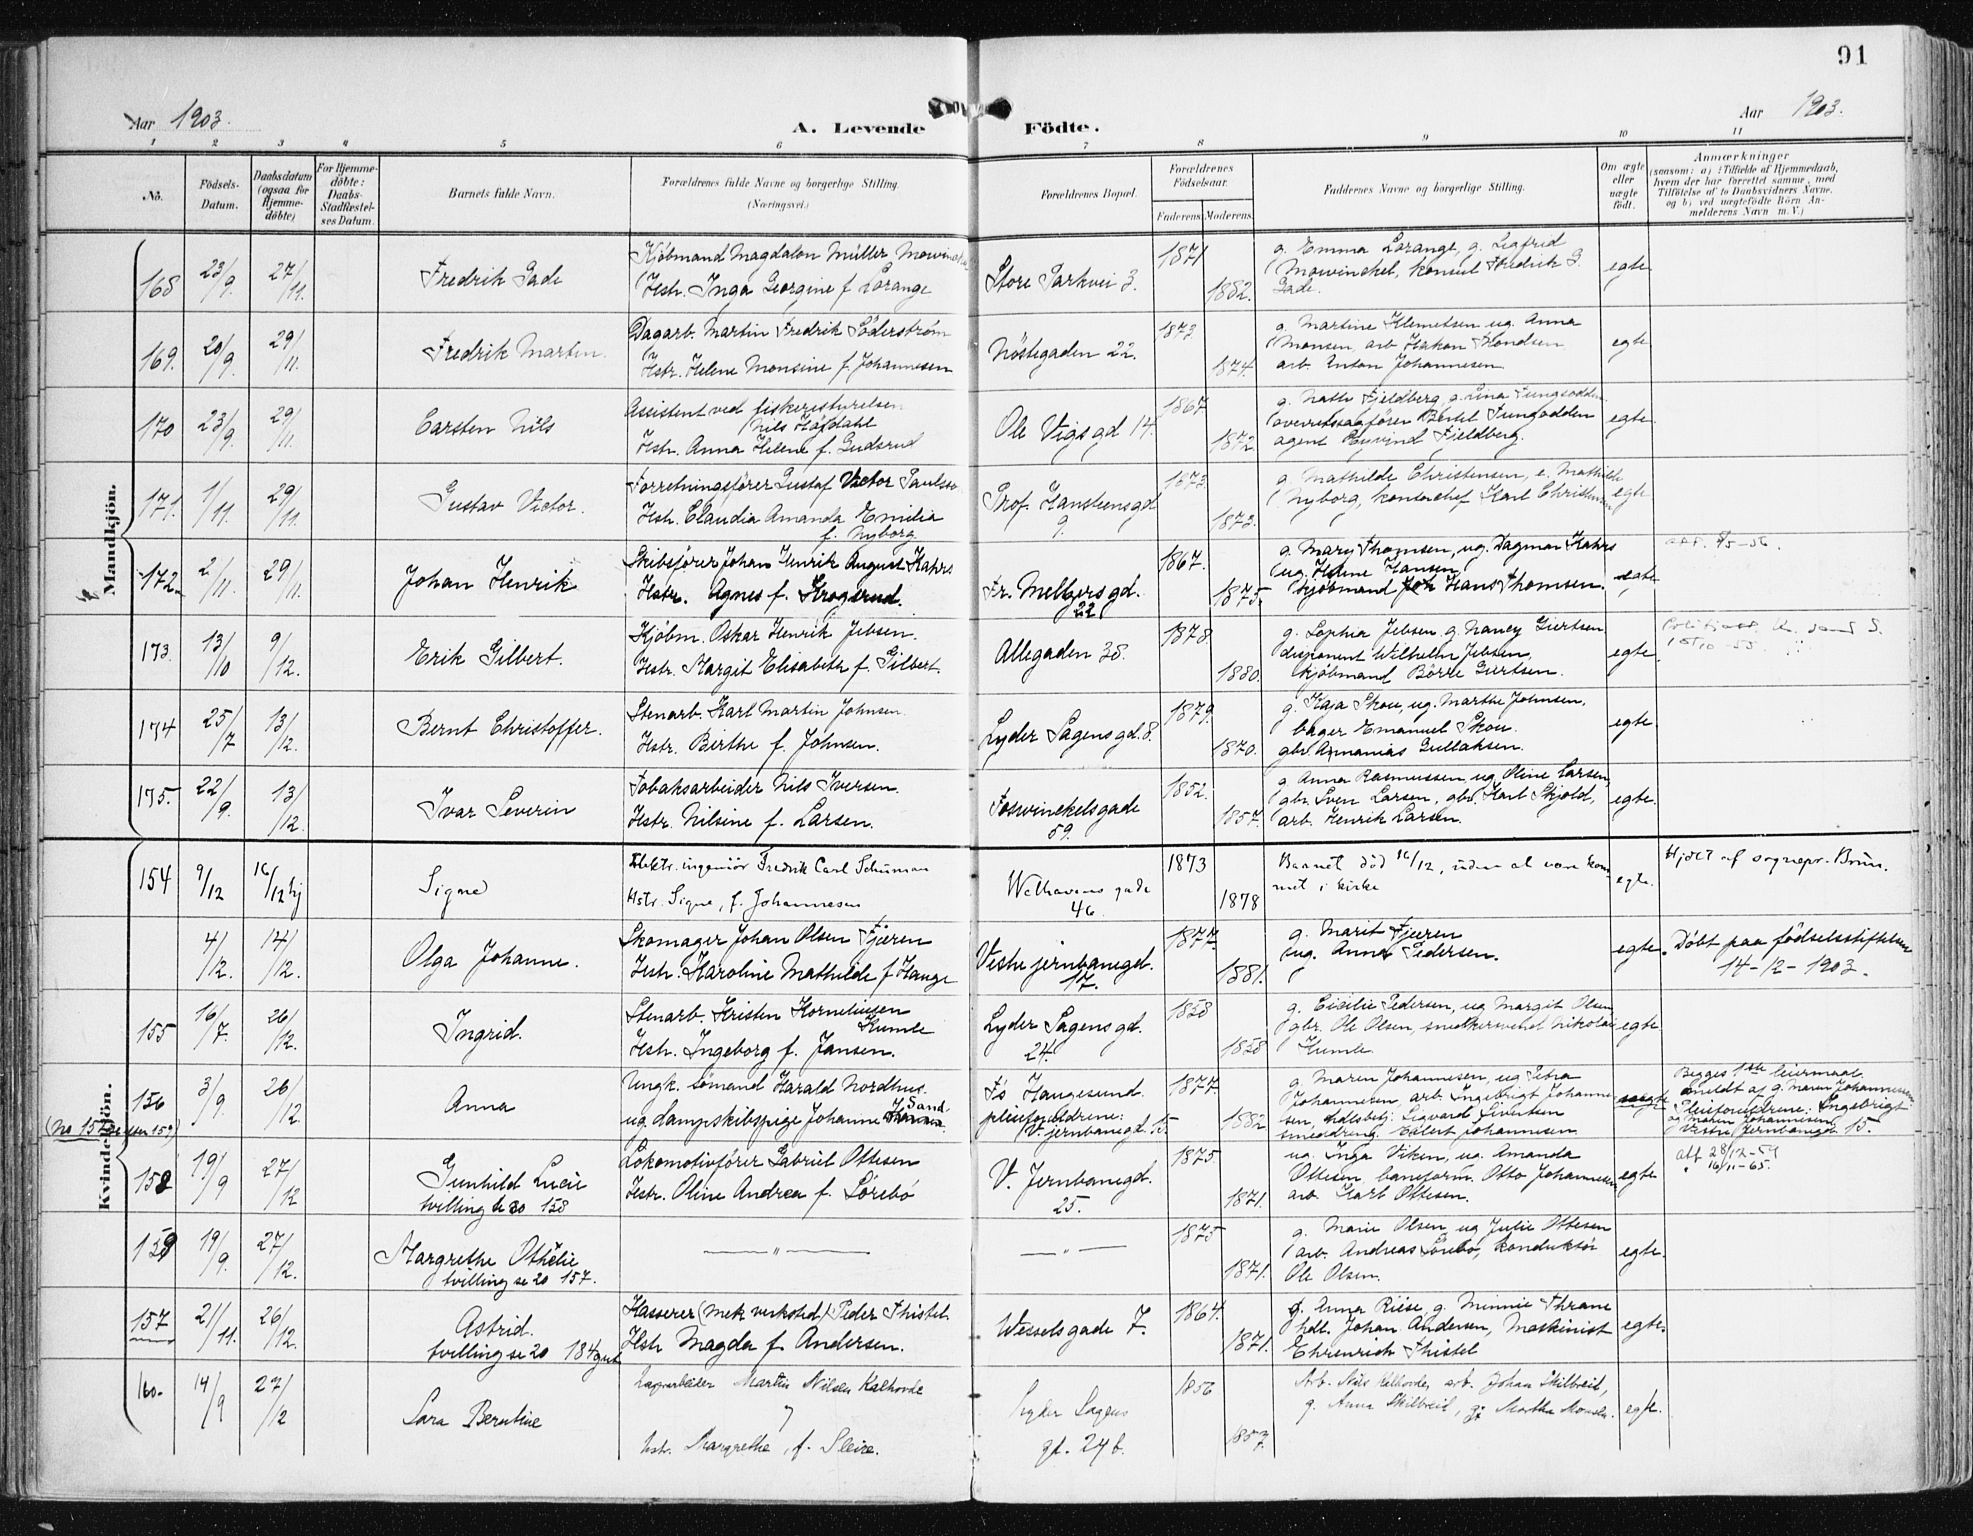 91
Aar 1903.
A. Levende Födte.
Aar 1903.
1 2 3 4 5 6 7 8 9 10 11
No.
Födsels-Datum.
Daabsdatum (ogsaa for Hjemmedöbte)
For Hjemmedöbte: Daabs-Stadfæstelses Datum.
Barnets fulde Navn.
Forældrenes fulde Navne og borgerlige Stilling. (Næringsvei.)
Forældrenes Bopæl.
Forældrenes Födselsaar.
Faderens. Moderens.
Faddernes Navne og borgerlige Stilling.
Om ægte eller uægte födt.
Anmærkninger
(saasom: a) i Tilfælde af Hjemmedaab, hvem der har forrettet samme, med Tilföielse af to Daabsvidners Navne, og b) ved uægtefödte Börn Anmelderens Navn m. V.)
Mandkjön.
168 23/9. 27/11. Fredrik Gade
Kjöbmand Magdalon Müller Mowinckel
Hstr. Inga Georgine f. Lorange
Store Parkvei 3. 1871 1882.
g. Emma Lorange, g. Sigfrid
Mowinckel, konsul Fredrik G.
Gade.
egte
169. 20/9 29/11. Fredrik Martin.
Dagarb. Martin Fredrik Söderström
Hstr. Helene Monsine f. Johannesen
Nöstegaden 22. 1873. 1874.
g. Martine Klemetsen ug. Anna
Monsen, arb. Haakon
arb. Anton Johannesen
egte
170 23/9. 29/11. Carsten Nils
Assistent ved fiskeristyrelsen
Nils Höydahl
Hstr. Anna Helene f. Gudsrud
Ole Vigs gd 14. 1867 1872.
g. Fjeldberg, g. Lina
overretssagförer Bertel
agent Eyvind Fjeldberg.
egte
171. 1/11. 29/11. Gustav Victor.
Forretningsförer Gustaf Victor Paulsen
Hstr. Claudia Amanda Emilia
f. Nyborg
Prof. Hansteensgd
9. 1873. 1873.
g. Mathilde Christensen, e. Mathilde
Nyborg, kontorchef Karl Christensen
egte
172. 2/11. 29/11. Johan Henrik
Skibsförer Johan Henrik August Kahrs
Hstr. Agnes f. Krogsrud.
Fr. Meltzers gd.
22 1867. 1875.
g. Mary Thomsen, ug. Dagmar Kahrs
ug. Helene Hansen
kjöbmand Hans Thomsen.
egte
173. 13/10 9/12. Erik Gilbert.
Kjöbm. Oskar Henrik Jebsen.
Hstr. Margit Elisabeth f. Gilbert.
Allegaden 38. 1878. 1880.
g. Sophia Jebsen, g. Nancy Giertsen
disponent Wilhelm Jebsen,
kjöbmand Börre Giertsen.
egte
174 25/7 13/12. Bernt Christoffer.
Stenarb. Karl Martin Johnsen.
Hstr. Birthe f. Johnsen.
Lyder Sagens gd. 8. 1879. 1870.
g. Kaja Skou, ug. Marthe Johnsen,
bager Emanuel Skou.
gbr. Annanias Gullaksen.
egte
175. 22/9. 13/12. Ivar Severin
Tobaksarbeider Nils Iversen.
Hstr. Nilsine f. Larsen.
Foswinckelsgade
59. 1852. 1857.
g. Anna Rasmussen, ug. Oline Larsen,
gbr. Sven Larsen, gbr. Karl Skjold,
arb. Henrik Larsen.
egte.
Kvindekjön.
154 9/12 16/12 hj Signe
Elektr. ingeniör Fredrik Carl Schuman
Hstr. Signe, f. Johannesen
Welhavens gade
46. 1873 1878
Barnet död 16/12, uden at være kommet i kirke
egte.
Hjdbt af sognepr. Brun.
4/12. 14/12. Olga Johanne.
Skomager Johan Olsen Fjæren
Hstr. Karoline Mathilde f. Hauge
Vestre jernbanegd.
17. 1877. 1881.
g. Marit Fjæren
ug. Anna Pedersen.
egte.
Döbt paa födselsstiftelsen
14-12-1903.
155 16/7. 26/12. Ingrid.
Stenarb. Kristen Korneliusen
Humle
Hstr. Ingeborg f. Jansen.
Lyder Sagens gd.
24. 1858 1858
g. Cicilie Pedersen, ug. Margit Olsen
gbr. Ole Olsen, snedkersvend Nikolai
Humle.
egte
156 3/9. 26/12. Anna
Ungk. sömand Harald Nordhus.
ug. dampskibspige Johanne Sand.
Fs Haugesund.
pleieforældrene:
V. jernbanegd. 15. 1877. 1882
g. Maren Johannesen, ug. Petra
Johannesen, arb. Ingebrigt Johannesen, Sigvard Sivertsen
smeddreng Eilert Johannesen
uegte
Begges 1ste leiermaal.
anmeldt af g. Maren Johannesen
Pleieforældrene: Ingebrigt
og Maren Johannesen,
Vestre Jernbanegd. 15.
(No 157 se efter 159)
158 19/9 27/12 Gunhild Lucie
tvilling se no 158
Lokomotivförer Gabriel Ottesen
Hstr. Oline Andrea f. Sörebö
V. Jernbanegd.
25. 1875. 1871.
ug. Inga Viken, ug. Amanda
Ottesen, baneform. Otto Johannesen
arb. Karl Ottesen.
egte
att 28/12-59
" 16/11-65.
159 19/9. 27/12. Margrethe Othelie
tvilling se no 157.
— " — — " — 1875 1871.
g. Marie Olsen, ug. Julie Ottesen
arb. Andreas Sörebö, konduktör
Ole Olsen.
egte.
157 21/11. 26/12. Astrid.
tvilling se no 184 gut
Kasserer (mek verksted) Peder Thistel.
Hstr. Magda f. Andersen.
Wesselsgade 7. 1864. 1871.
g. Anna Riise, g. Minnie Thrane
hdl. Johan Andersen, Maskinist
Ehrenrich Thistel
egte.
160. 14/9 27/12 Sara Berntine
Martin Nilsen Kalhovde
hstr. Margrethe, f. Sleire.
Lyder Sagens
gt. 24 b. 1856 1857.
Arb. Nils Kalhovde, arb. Johan Skilbreid,
g. Anna Skilbreid, g. Martha Monsen.
egte.